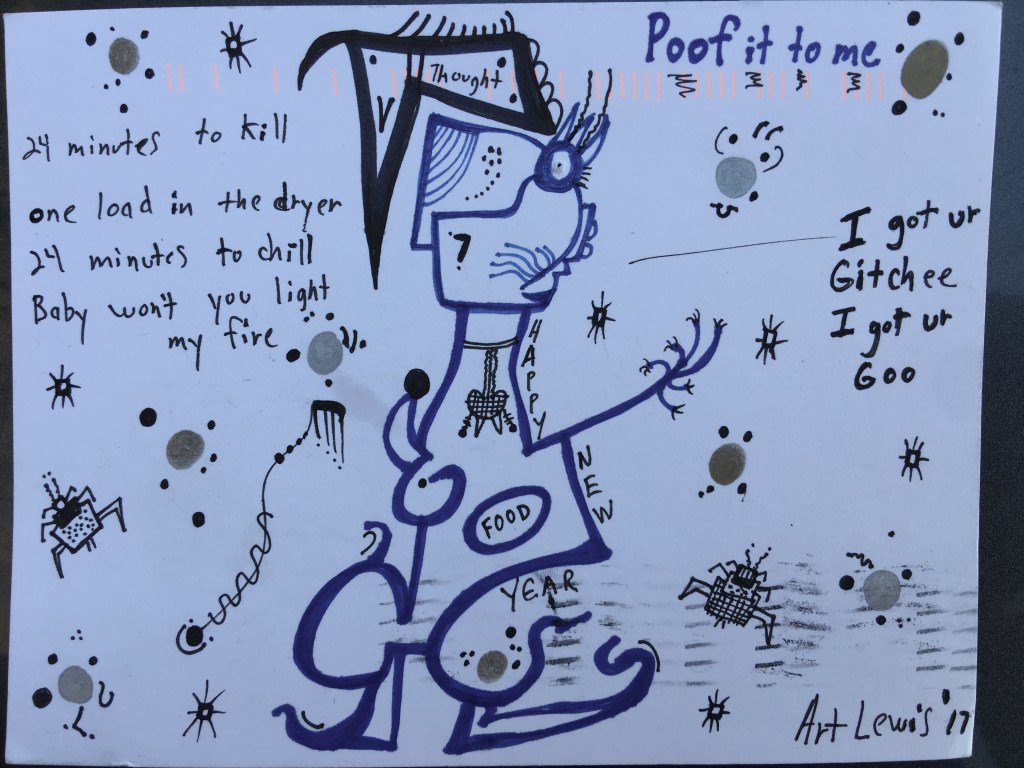 Poof it to me
Thought
V
24 minutes to kill
one load in the dryer
24 minutes to chill
Baby won't you light
my fire
7
I got ur
Gitchee
I got ur
Goo
HAPPY
NEW
YEAR
FOOD
Art Lewis '17